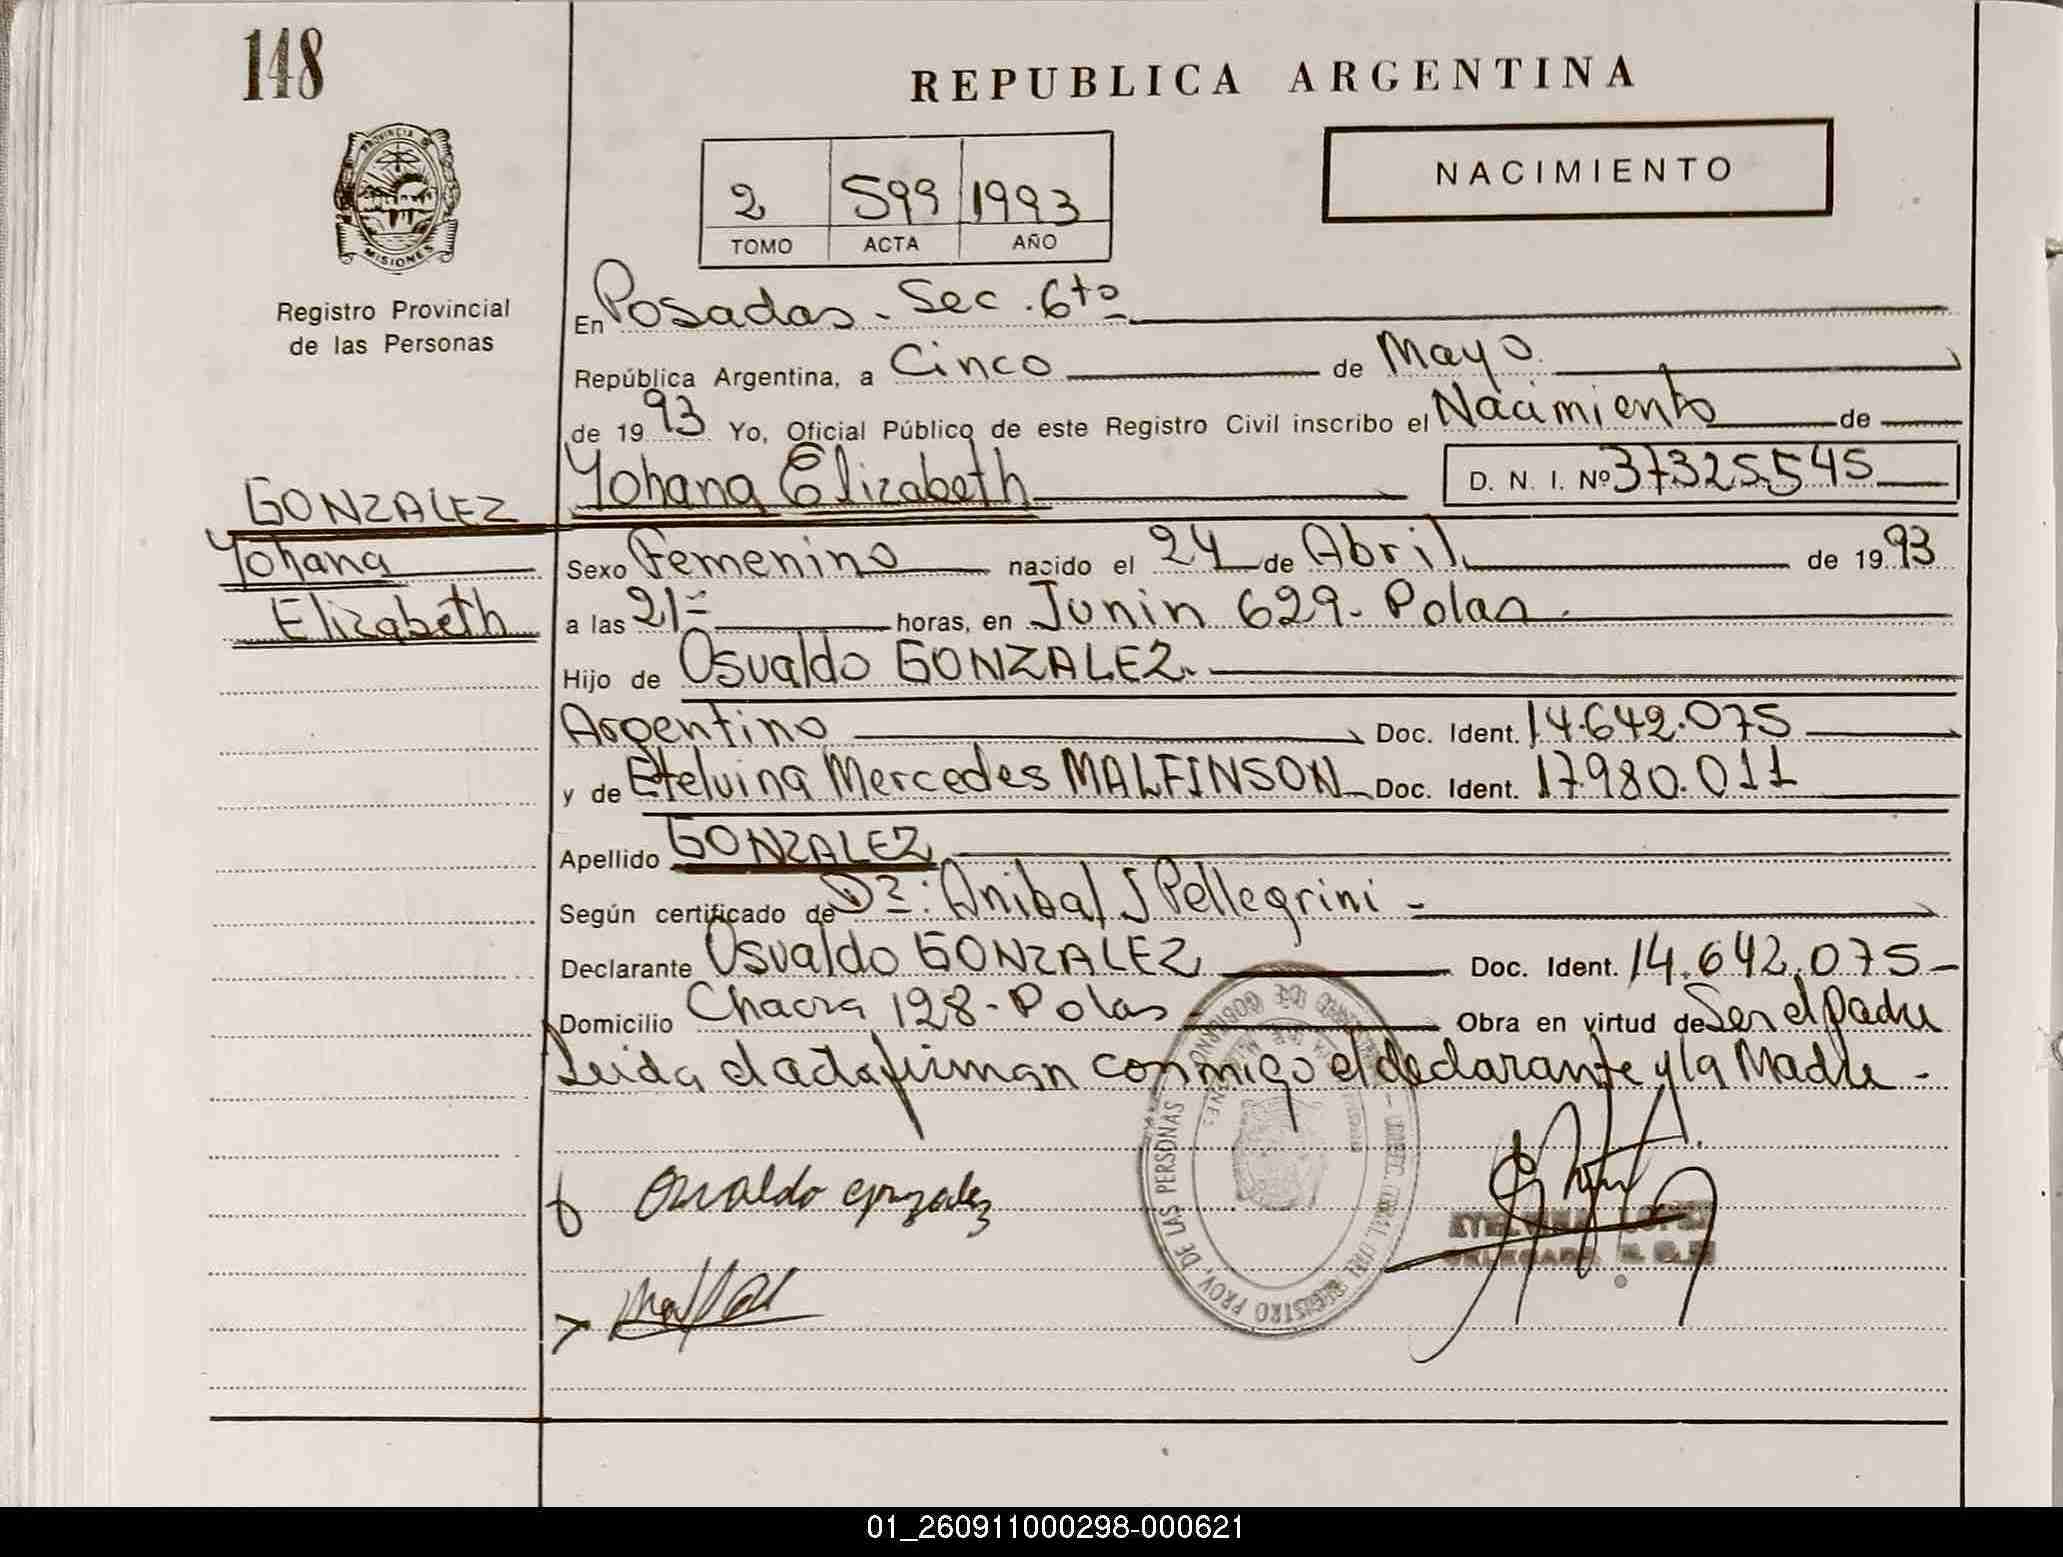 148
REPUBLICA ARGENTINA
PROVINCIA DE
MISIONES
2 599 1993
TOMO ACTA AÑO
NACIMIENTO
Registro Provincial
de las Personas
En Posadas - Sec. 6to
República Argentina, a Cinco de Mayo
de 1993 Yo, Oficial Público de este Registro Civil inscribo el Nacimiento de
Yohana Elizabeth D. N. I. Nº 37325545
GONZALEZ
Yohana
Elizabeth
Sexo Femenino nacido el 24 de Abril de 1993
a las 21= horas, en Junin 629- Pdas.
Hijo de Osvaldo GONZALEZ.
Argentino Doc. Ident. 14.642.075
y de Etelvina Mercedes MALFINSON Doc. Ident. 17.980.011
Apellido GONZALEZ
Según certificado de Dr: Anibal J Pellegrini -
Declarante Osvaldo GONZALEZ Doc. Ident. 14.642.075-
Domicilio Chacra 128- Pdas Obra en virtud de Ser el padre
Leida el acta firman conmigo el declarante y la Madre -
Osvaldo gonzalez
REGISTRO PROV. DE LAS PERSONAS
01_260911000298-000621